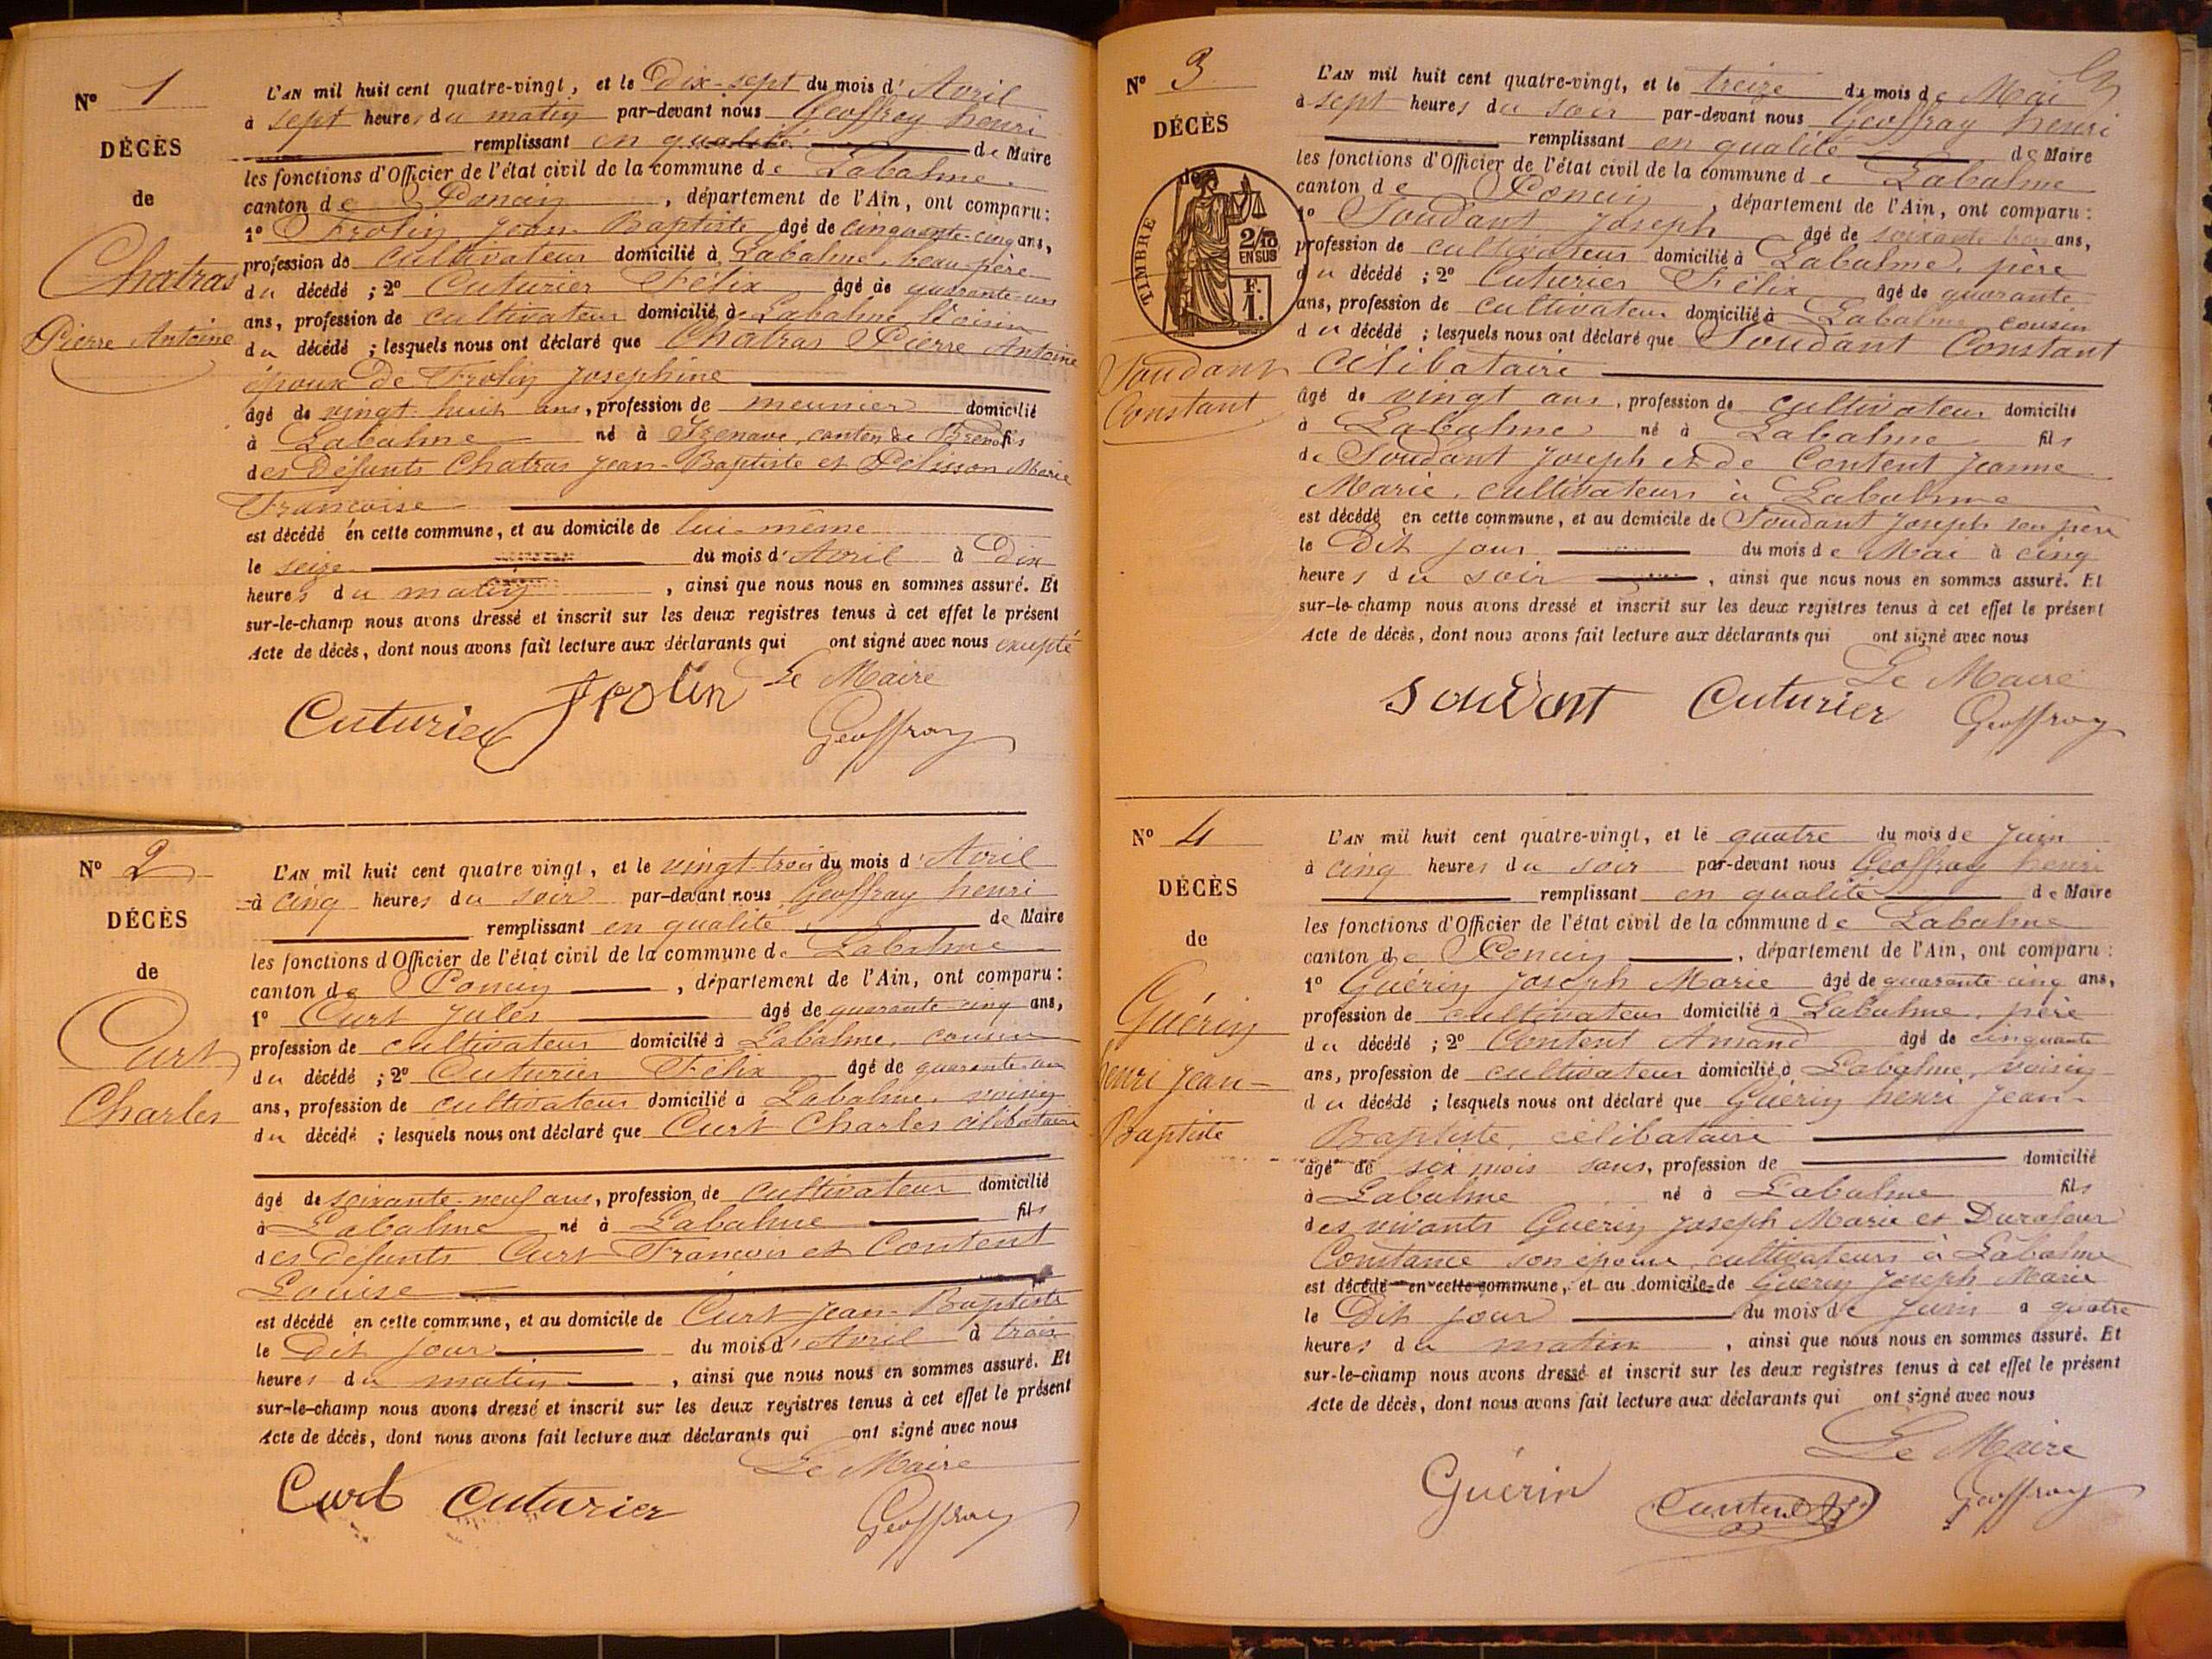 N° 1
DÉCÈS
de
Chatras
Pierre Antoine
L'AN mil huit cent quatre-vingt, et le Dix-sept du mois d'Avril
à sept heures du matin par-devant nous Geoffray henri
remplissant en qualité de Maire
les fonctions d'Officier de l'état civil de la commune de Labalme
canton de Poncin, département de l'Ain, ont comparu:
1° Frolin Jean-Baptiste âgé de cinquante-cinq ans,
profession de cultivateur domicilié à Labalme, beau-père
du décédé ; 2° Cuturier Félix âgé de quarante-un
ans, profession de cultivateur domicilié à Labalme voisin
du décédé ; lesquels nous ont déclaré que Chatras Pierre Antoine
époux de Frolin Josephine
âgé de vingt-huit ans, profession de meunier domicilié
à Labalme né à Izenave, canton de Brenod fils
des défunts Chatras Jean-Baptiste et Pélisson Marie
Francoise
est décédé en cette commune, et au domicile de lui-même
le seize du mois d'Avril à Dix
heures du matin, ainsi que nous nous en sommes assuré. Et
sur-le-champ nous avons dressé et inscrit sur les deux registres tenus à cet effet le présent
Acte de décès, dont nous avons fait lecture aux déclarants qui ont signé avec nous excepté
Le Maire
Cuturier Frolin Geoffray
N° 2
DÉCÈS
de
Curt
Charles
L'AN mil huit cent quatre vingt, et le vingt-trois du mois d'Avril
à cinq heures du soir par-devant nous Geoffray henri
remplissant en qualité de Maire
les fonctions d'Officier de l'état civil de la commune de Labalme
canton de Poncin, département de l'Ain, ont comparu:
1° Curt Jules âgé de quarante-cinq ans,
profession de cultivateur domicilié à Labalme, cousin
du décédé ; 2° Cuturier Félix âgé de quarante-un
ans, profession de cultivateur domicilié à Labalme, voisin
du décédé ; lesquels nous ont déclaré que Curt Charles célibataire
âgé de soixante-neuf ans, profession de cultivateur domicilié
à Labalme né à Labalme fils
des défunts Curt Francois et Content
Louise
est décédé en cette commune, et au domicile de Curt Jean-Baptiste
le Dit jour du mois d'Avril à trois
heures du matin, ainsi que nous nous en sommes assuré. Et
sur-le-champ nous avons dressé et inscrit sur les deux registres tenus à cet effet le présent
Acte de décès, dont nous avons fait lecture aux déclarants qui ont signé avec nous
Le Maire
Curt Cuturier Geoffray
N° 3
DÉCÈS
de
TIMBRE
2/10
EN SUS
F.
1.
Soudant
Constant
L'AN mil huit cent quatre-vingt, et le treize du mois de Mai
à sept heures du soir par-devant nous Geoffray henri
remplissant en qualité de Maire
les fonctions d'Officier de l'état civil de la commune de Labalme
canton de Poncin, département de l'Ain, ont comparu:
1° Soudant Joseph âgé de soixante trois ans,
profession de cultivateur domicilié à Labalme, père
du décédé ; 2° Cuturier Félix âgé de quarante
ans, profession de cultivateur domicilié à Labalme cousin
du décédé ; lesquels nous ont déclaré que Soudant Constant
célibataire
âgé de vingt ans, profession de cultivateur domicilié
à Labalme né à Labalme fils
de Soudant Joseph et de Content Jeanne
Marie, cultivateurs à Labalme
est décédé en cette commune, et au domicile de Soudant Joseph son père
le Dit jour du mois de Mai à cinq
heures du soir, ainsi que nous nous en sommes assuré. Et
sur-le-champ nous avons dressé et inscrit sur les deux registres tenus à cet effet le présent
Acte de décès, dont nous avons fait lecture aux déclarants qui ont signé avec nous
Le Maire
Soudant Cuturier Geoffray
N° 4
DÉCÈS
de
Guérin
henri Jean-
Baptiste
L'AN mil huit cent quatre-vingt, et le quatre du mois de Juin
à cinq heures du soir par-devant nous Geoffray henri
remplissant en qualité de Maire
les fonctions d'Officier de l'état civil de la commune de Labalme
canton de Poncin, département de l'Ain, ont comparu:
1° Guérin Joseph Marie âgé de quarante-cinq ans,
profession de cultivateur domicilié à Labalme, père
du décédé ; 2° Content Amand âgé de cinquante
ans, profession de cultivateur domicilié à Labalme, voisin
du décédé ; lesquels nous ont déclaré que Guérin henri Jean-
Baptiste, célibataire
âgé de six mois sans, profession de domicilié
à Labalme né à Labalme fils
des vivants Guérin Joseph Marie et Durafour
Constance son épouse cultivateurs à Labalme
est décédé en cette commune, et au domicile de Guérin Joseph Marie
le Dit jour du mois de Juin à quatre
heures du matin, ainsi que nous nous en sommes assuré. Et
sur-le-champ nous avons dressé et inscrit sur les deux registres tenus à cet effet le présent
Acte de décès, dont nous avons fait lecture aux déclarants qui ont signé avec nous
Le Maire
Guérin Content Geoffray